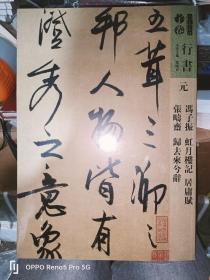 行書
元
馮子振 虹月樓記 居庸賦
張疇齋 歸去來兮辭
五茸三泖之
邦人物皆有
澄秀之意象
OPPO Reno6 Pro 5G